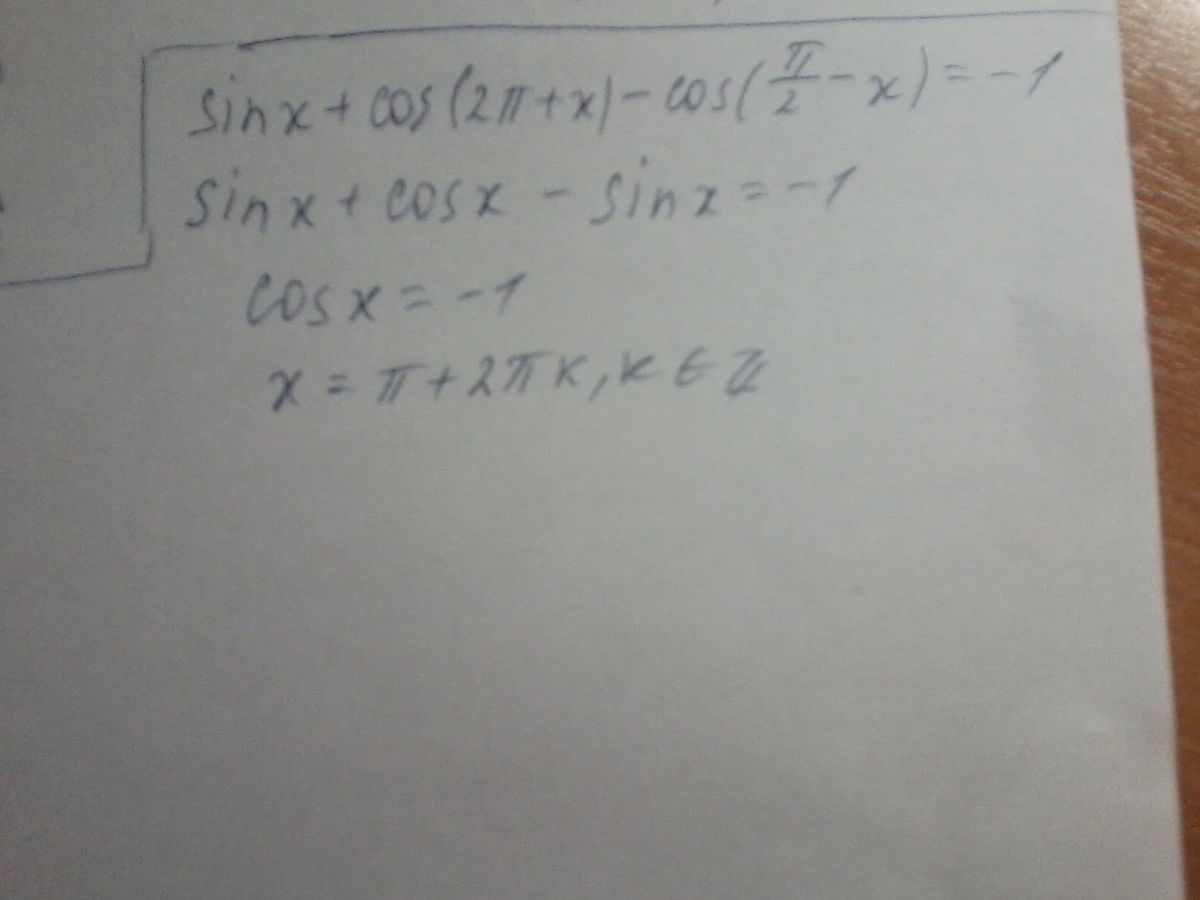 sin x + cos(2π + x) - cos(π/2 - x) = -1
sin x + cos x - sin x = -1
cos x = -1
x = π + 2πk, k ∈ ℤ